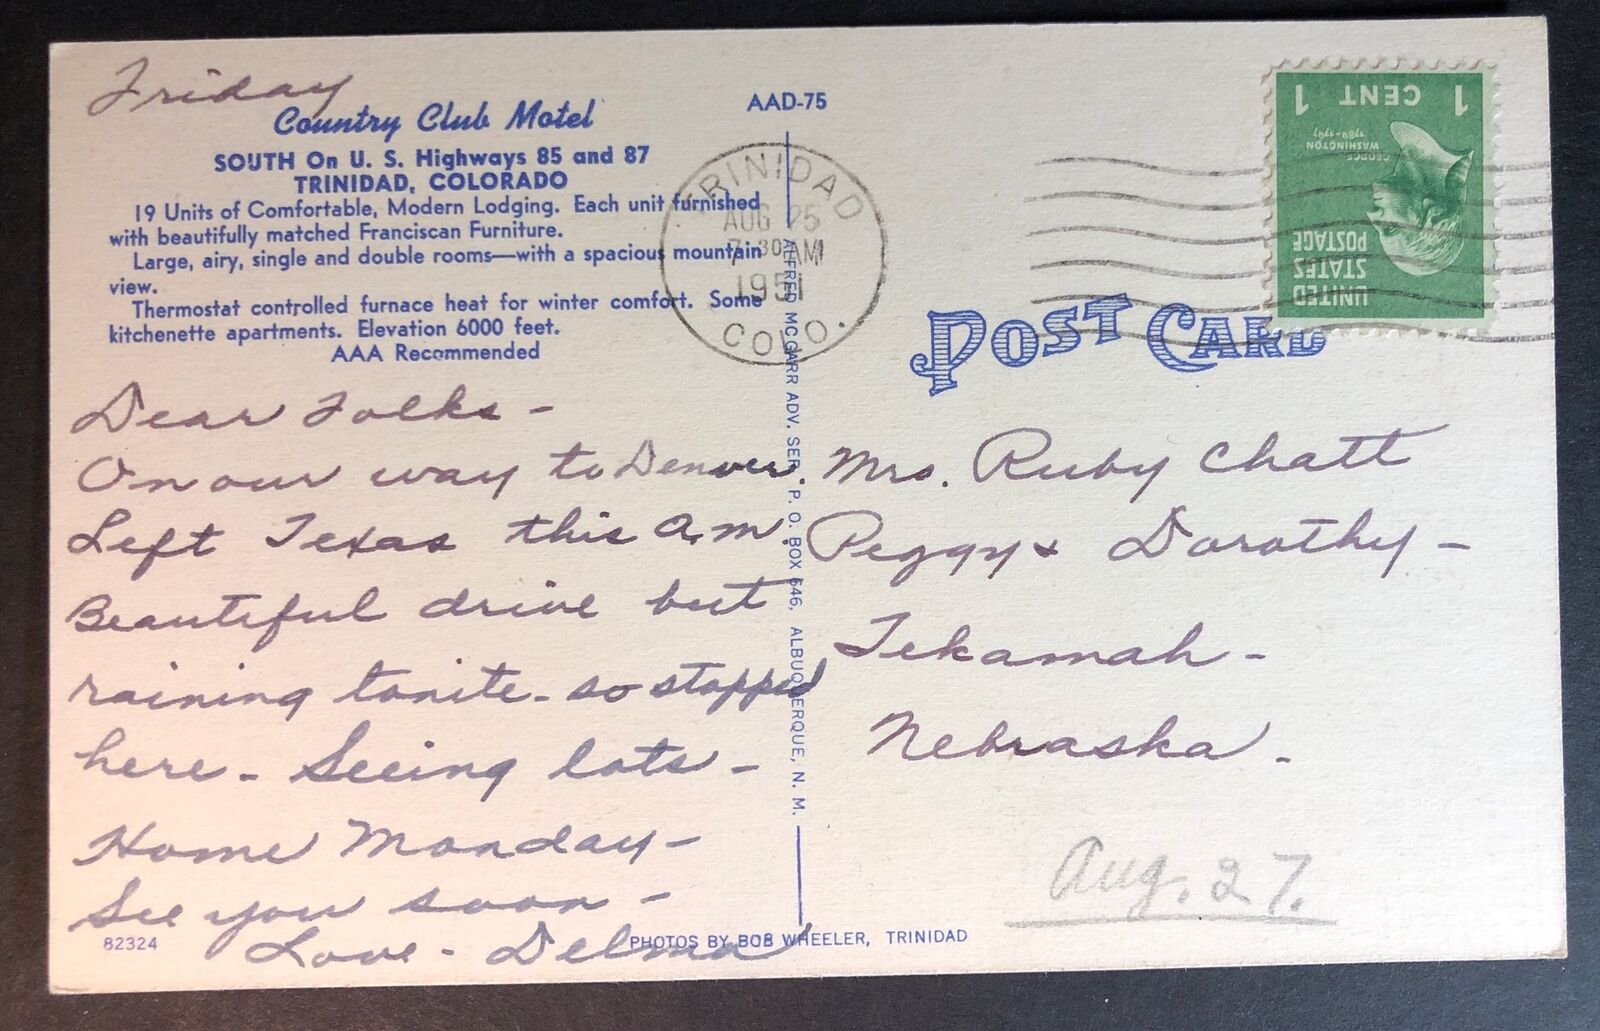 Friday
Country Club Motel
SOUTH On U. S. Highways 85 and 87
TRINIDAD, COLORADO
19 Units of Comfortable, Modern Lodging. Each unit furnished
with beautifully matched Franciscan Furniture.
Large, airy, single and double rooms—with a spacious mountain
view.
Thermostat controlled furnace heat for winter comfort. Some
kitchenette apartments. Elevation 6000 feet.
AAA Recommended
Dear Folks -
On our way to Denver.
Left Texas this a.m.
Beautiful drive but
raining tonite - so stopped
here - Seeing lots -
Home Monday -
See you soon -
Love - Delma
82324
AAD-75
TRINIDAD
AUG 25
7 30 AM
1951
COLO.
ALFRED MC GARR ADV. SER. P. O. BOX 646, ALBUQUERQUE, N. M.
PHOTOS BY BOB WHEELER, TRINIDAD
POST CARD
1 CENT 1
GEORGE
WASHINGTON
1789-1797
UNITED
STATES
POSTAGE
Mrs. Ruby Chatt
Peggy & Dorothy -
Tekamah -
Nebraska -
Aug. 27.